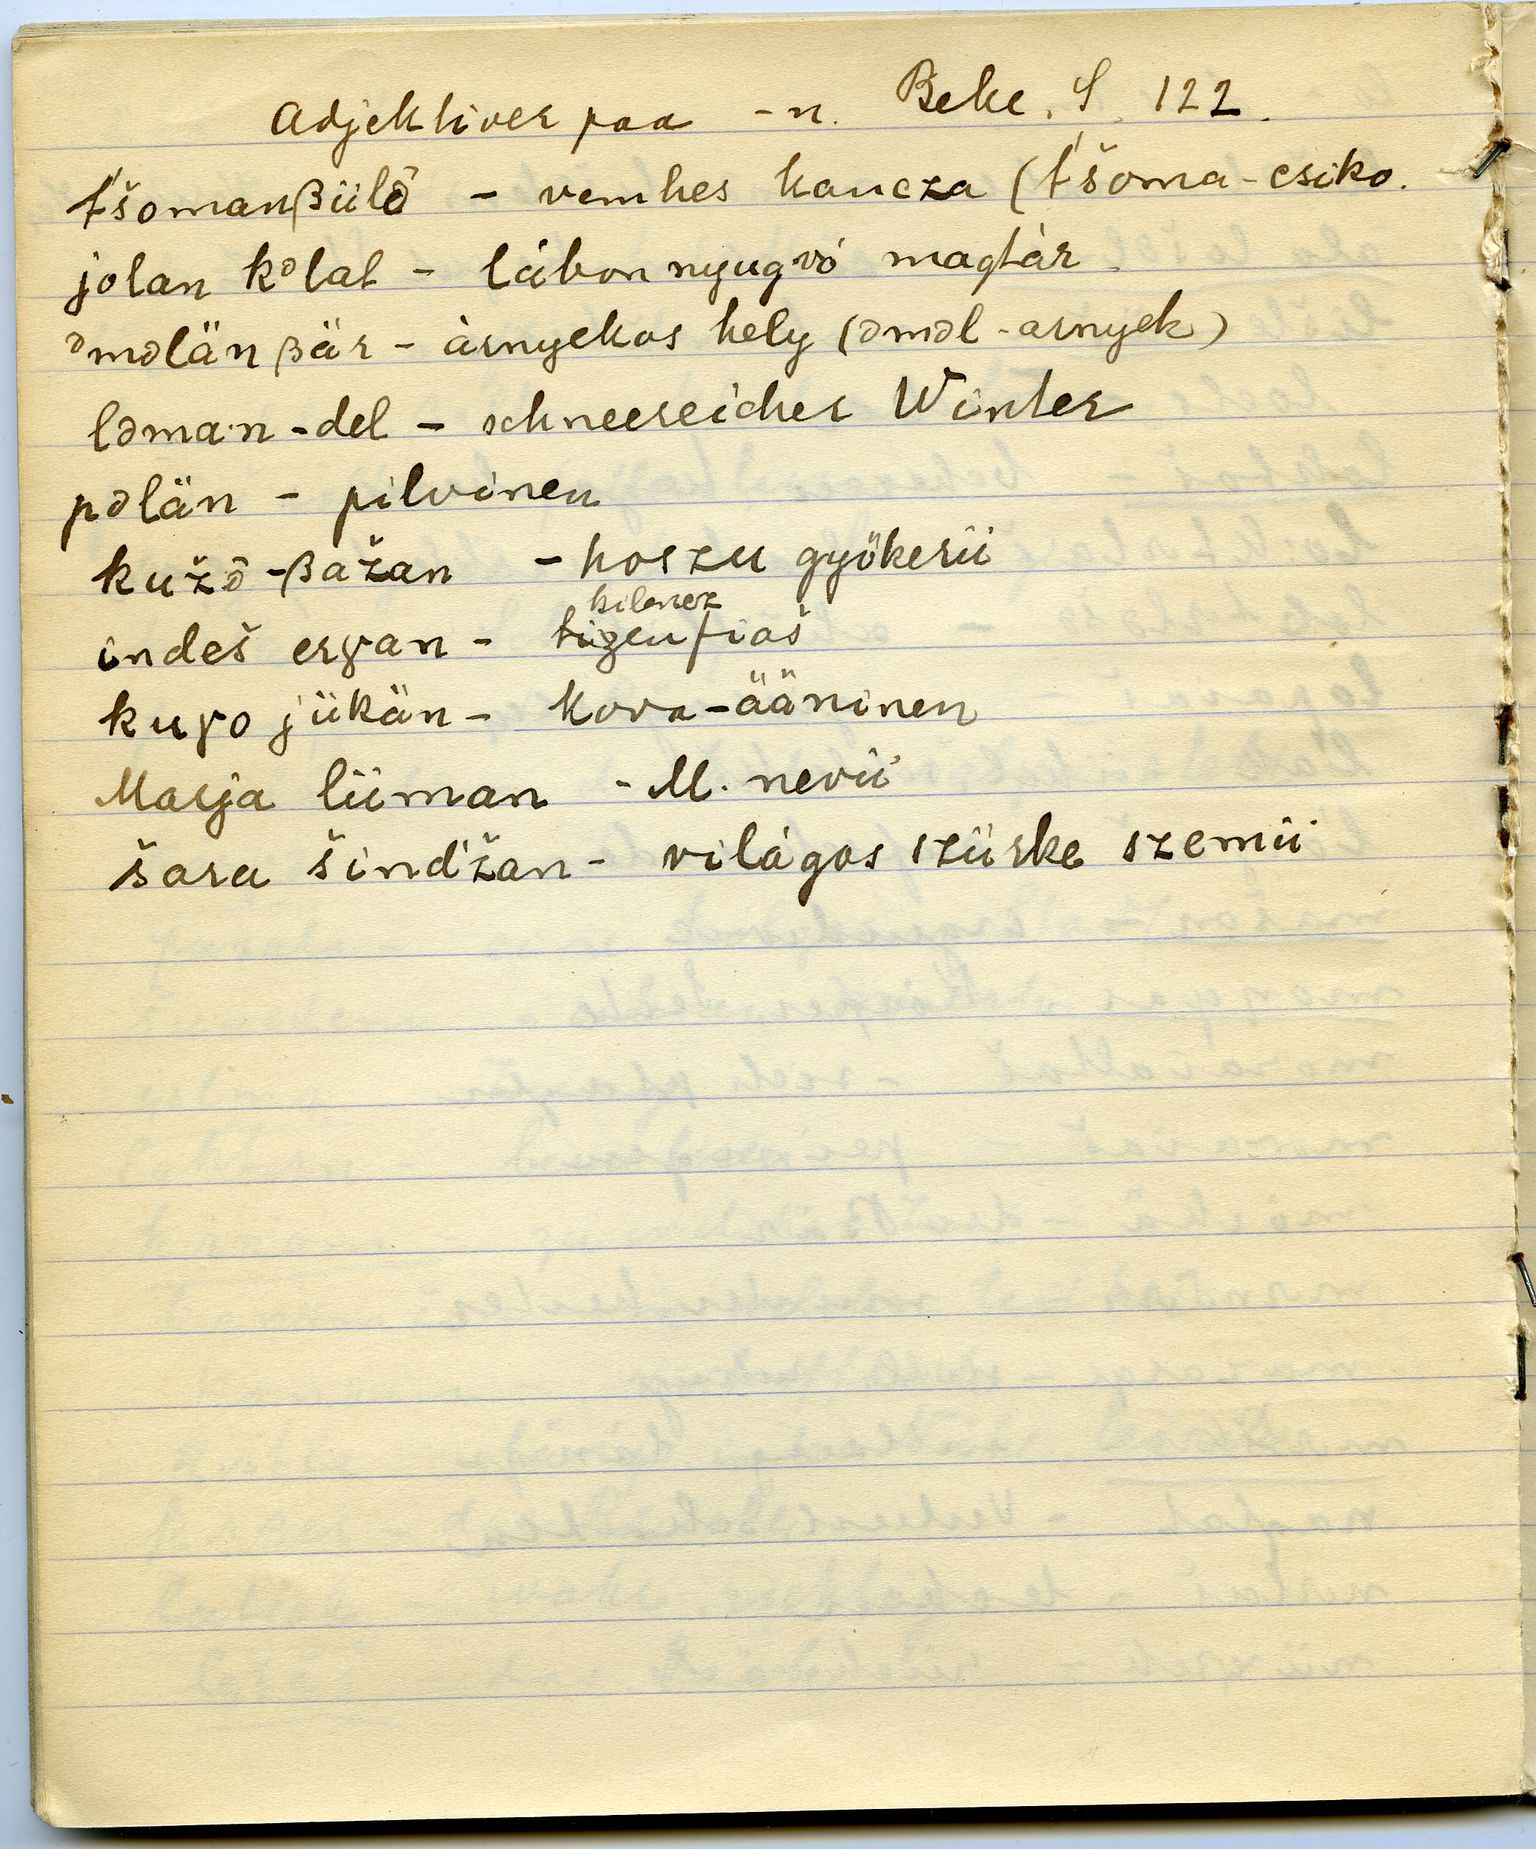 Adjektiver paa -n. Beke, S. 122.
t́šomanβülə̑ - vemhes kancza (t́šoma-csiko.
jolan kə̑lat - lábon nyugvó magtár
əmə̑län βär - àrnyekos hely (əmə̑l - arnyek)
lə̑man-del - schneereicher Winter
pə̑län - pilvinen
kužə̑-βažan - hoszu gyökerü
indeš erγan - kilencz fiaš
kuγo jükän - kova-ääninen
Marja lüman - M. nevü
šara šind́žan - világos szürke szemü